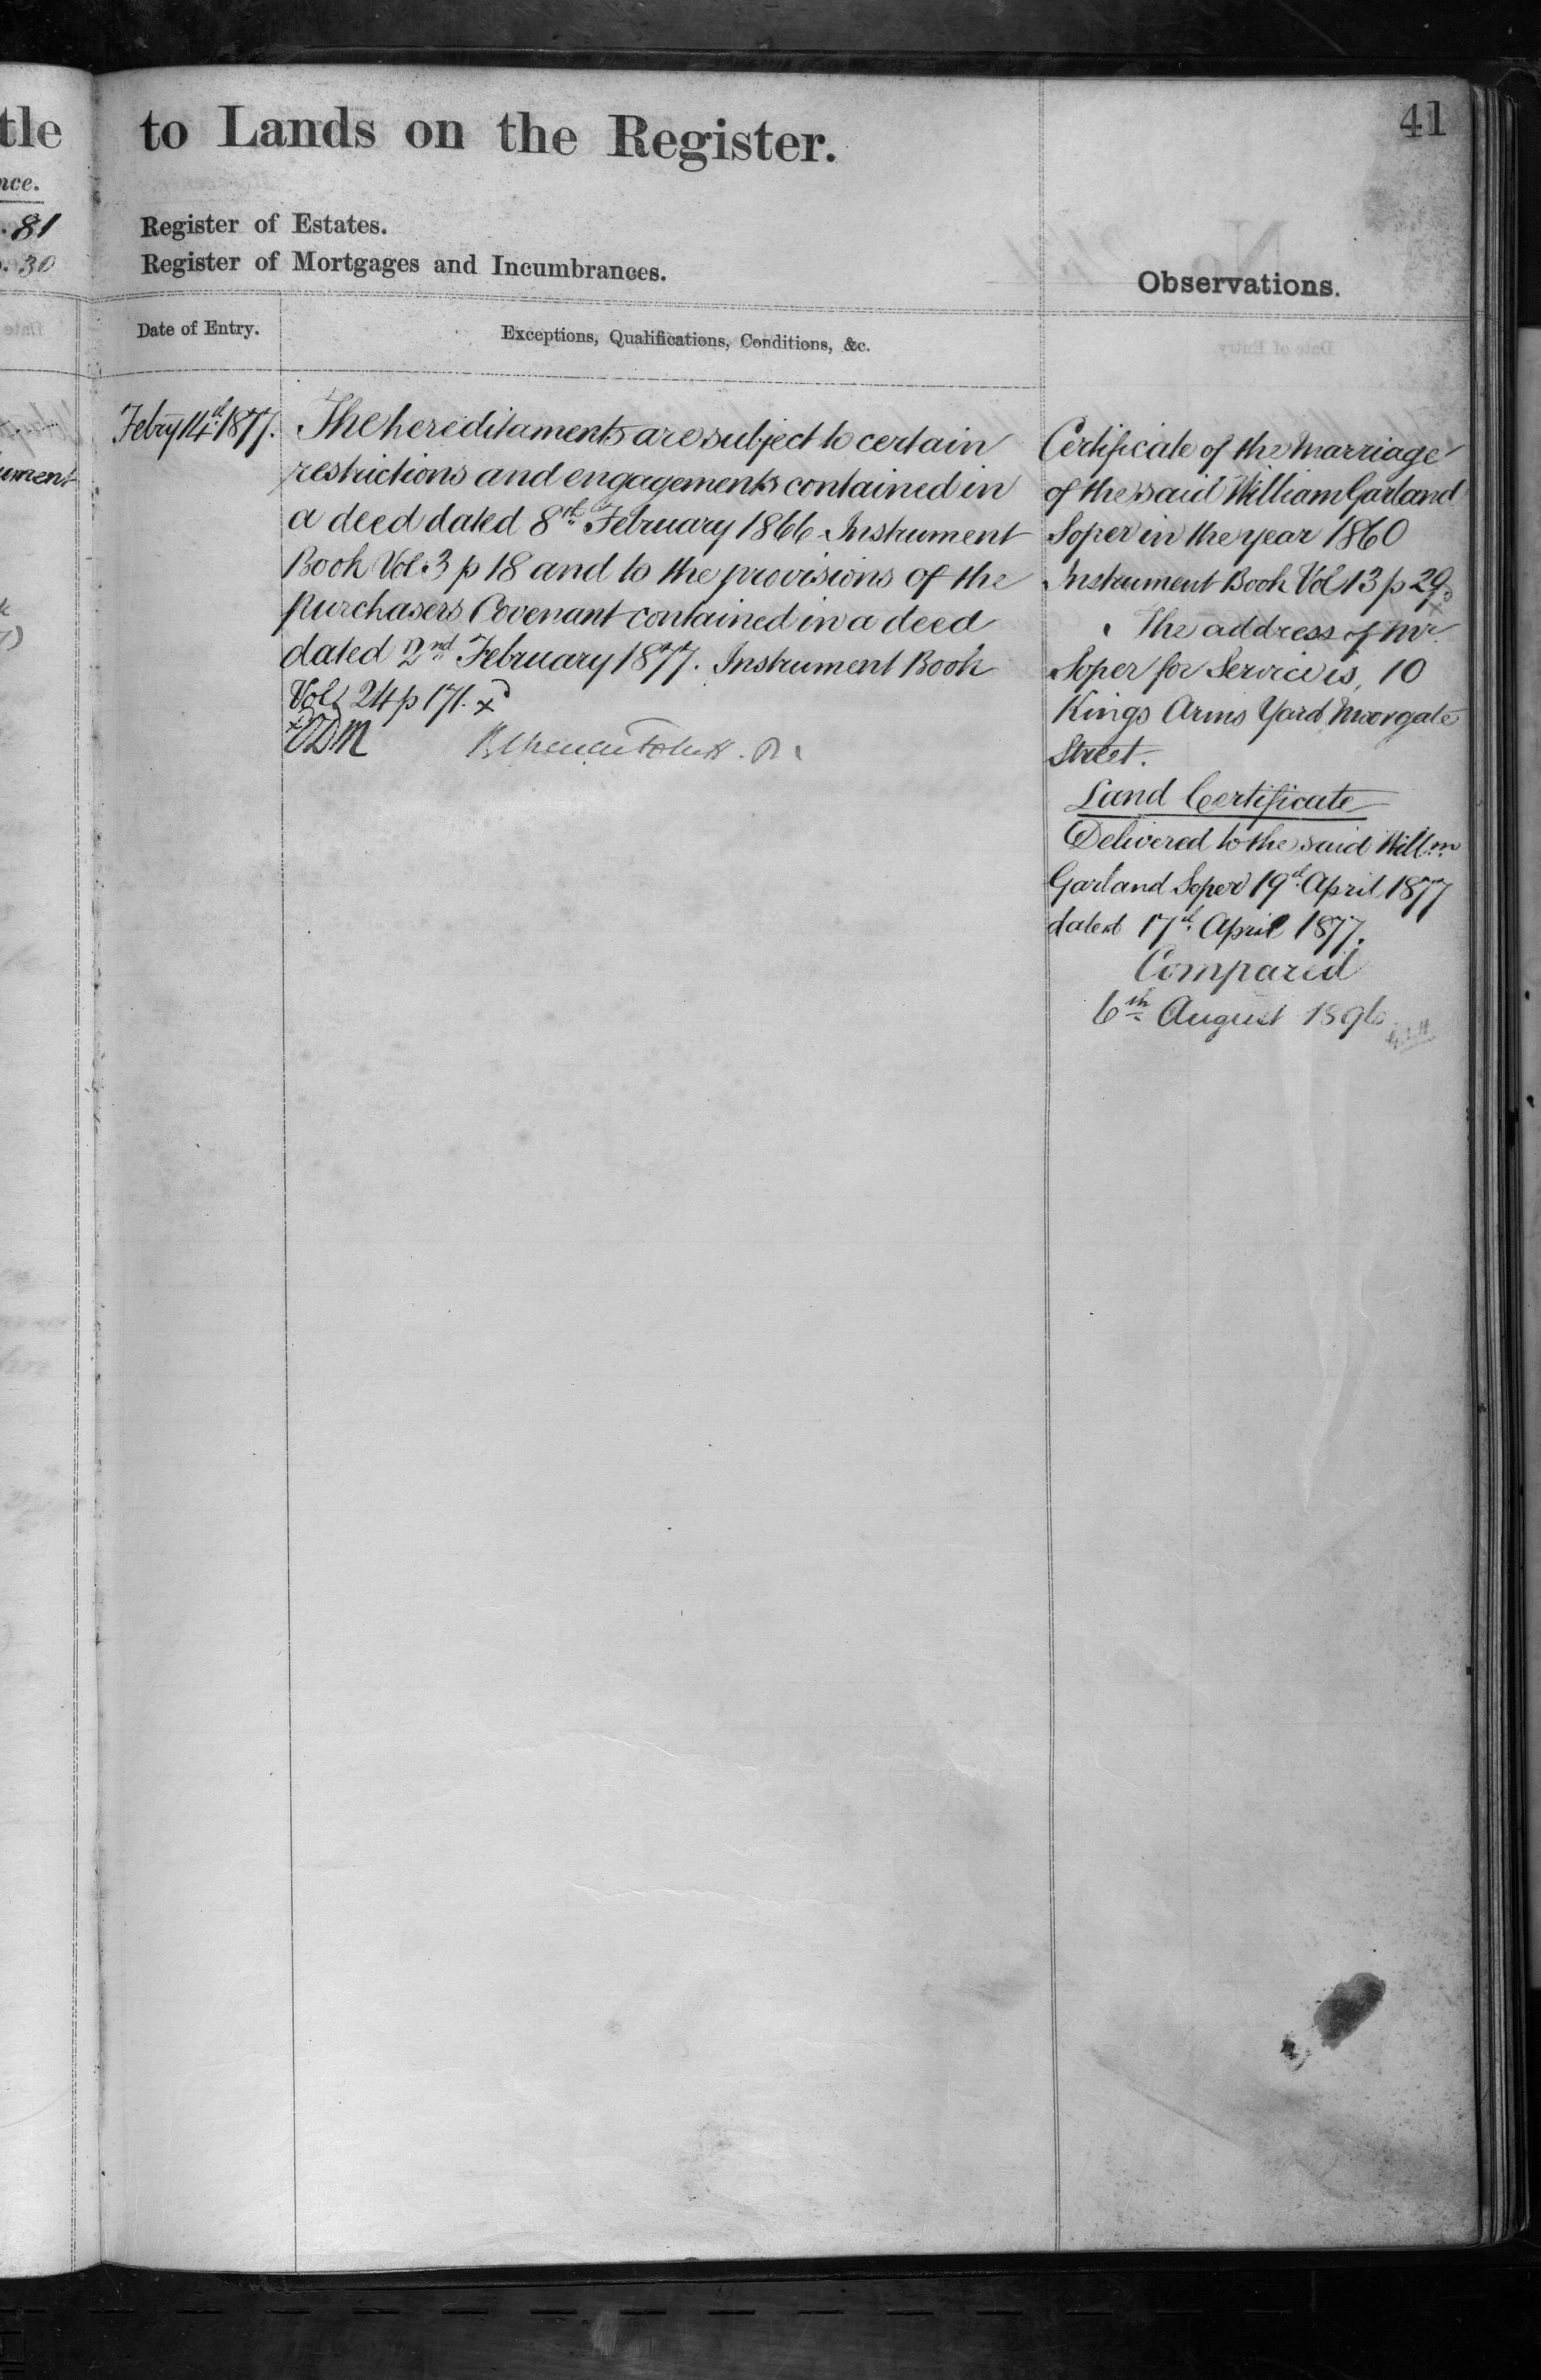 tle
nce.
. 81
. 30
ument
41
to Lands on the Register.
Register of Estates.
Register of Mortgages and Incumbrances.
Observations.
Date of Entry.
Exceptions, Qualifications, Conditions, &c.
Febry 14th 1877.
The hereditaments are subject to certain
restrictions and engagements contained in
a deed dated 8th February 1866 Instrument
Book Vol. 3 p 18 and to the provisions of the
purchasers Covenant contained in a deed
dated 2nd February 1877. Instrument Book
Vol. 24 p 171. x
Certificate of the Marriage
of the said William Garland
Soper in the year 1860
Instrument Book Vol 13 p 29.
The address of Mr
Soper for Service is, 10
Kings Arms Yard Moorgate
Street.
Land Certificate
Delivered to the said Willm
Garland Soper 19th April 1877
dated 17th April 1877.
Compared
6th August 1896